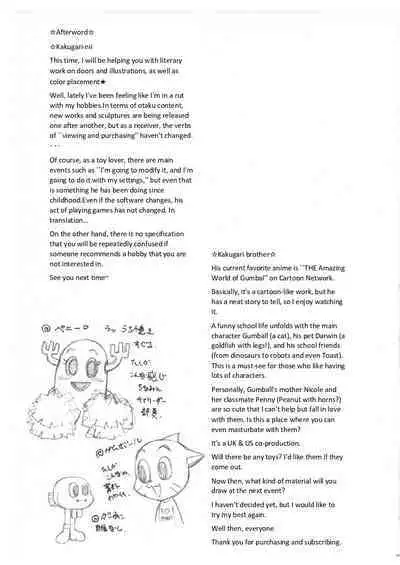 ☆Afterword☆
☆Kakugari-nii
This time, I will be helping you with literary
work on doors and illustrations, as well as
color placement★
Well, lately I've been feeling like I'm in a rut
with my hobbies.In terms of otaku content,
new works and sculptures are being released
one after another, but as a receiver, the verbs
of ``viewing and purchasing'' haven't changed.
・・・
Of course, as a toy lover, there are main
events such as ``I'm going to modify it, and I'm
going to do it with my settings,'' but even that
is something he has been doing since
childhood.Even if the software changes, his
act of playing games has not changed. In
translation...
On the other hand, there is no specification
that you will be repeatedly confused if
someone recommends a hobby that you are
not interested in.
See you next time~
☆Kakugari brother☆
His current favorite anime is ``THE Amazing
World of Gumbal'' on Cartoon Network.
Basically, it's a cartoon-like work, but he
has a neat story to tell, so I enjoy watching
it.
A funny school life unfolds with the main
character Gumball (a cat), his pet Darwin (a
goldfish with legs!), and his school friends
(from dinosaurs to robots and even Toast).
This is a must-see for those who like having
lots of characters.
Personally, Gumball's mother Nicole and
her classmate Penny (Peanut with horns?)
are so cute that I can't help but fall in love
with them. Is this a place where you can
even masturbate with them?
It's a UK & US co-production.
Will there be any toys? I'd like them if they
come out.
Now then, what kind of material will you
draw at the next event?
I haven't decided yet, but I would like to
try my best again.
Well then, everyone
Thank you for purchasing and subscribing.
@ペニー